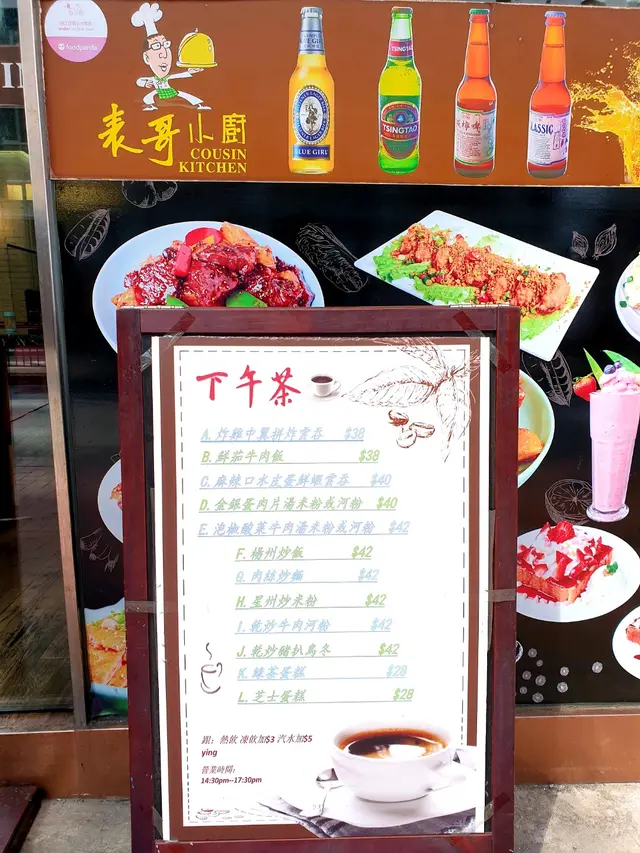 foodpanda
表哥小廚
COUSIN
KITCHEN
BLUE GIRL
BLUE GIRL
TSINGTAO
TSINGTAO
下午茶
A. 炸雞中翼拼炸雲吞 $38
B. 鮮茄牛肉飯 $38
C. 麻辣口水皮蛋鮮蝦雲吞 $40
D. 金銀蛋肉片湯米粉或河粉 $40
E. 泡椒酸菜牛肉湯米粉或河粉 $42
F. 楊州炒飯 $42
G. 肉絲炒麵 $42
H. 星州炒米粉 $42
I. 乾炒牛肉河粉 $42
J. 乾炒豬扒烏冬 $42
K. 綠茶蛋糕 $28
L. 芝士蛋糕 $28
跟：熱飲 凍飲加$3 汽水加$5
ying
營業時間：
14:30pm--17:30pm